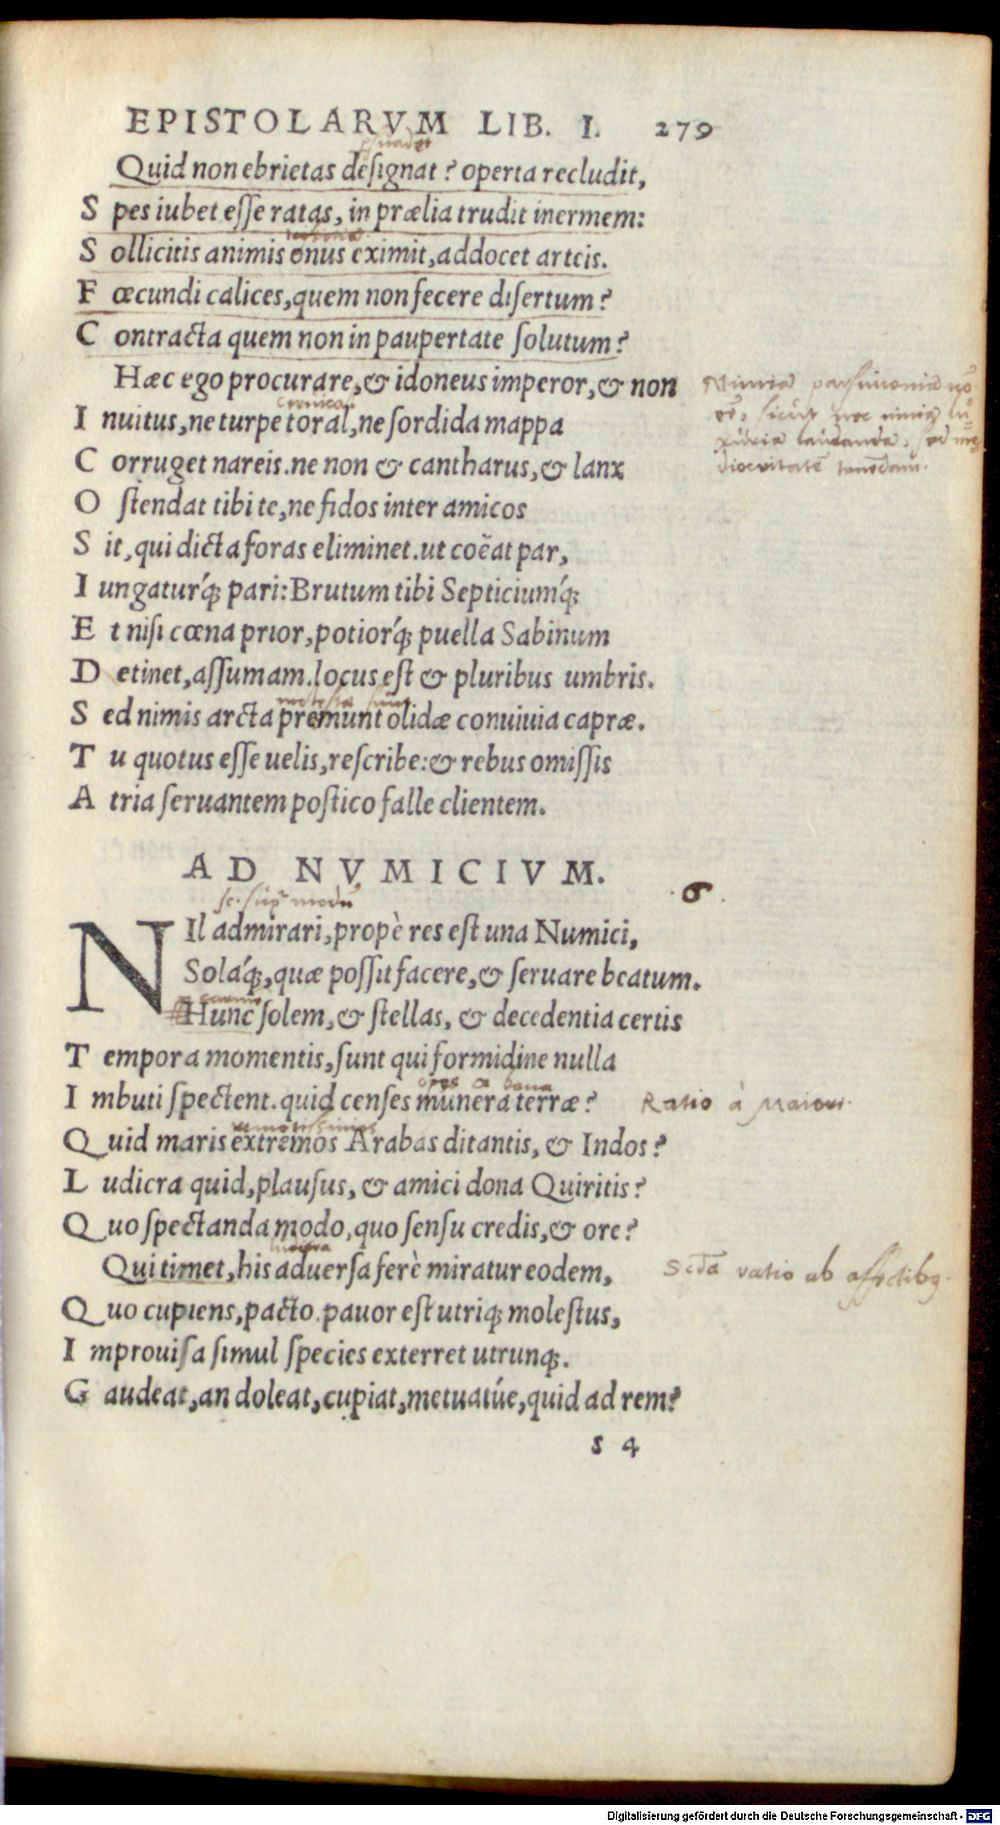 EPISTOLARVM LIB. I. 279
Quid non ebrietas deſignat? operta recludit,
S pes iubet eſſe ratas, in prælia trudit inermem:
S ollicitis animis onus eximit, addocet arteis.
F œcundi calices, quem non fecere diſertum?
C ontracta quem non in paupertate ſolutum?
Hæc ego procurare, & idoneus imperor, & non
I nuitus, ne turpe toral, ne ſordida mappa
C orruget nareis. ne non & cantharus, & lanx
O ſtendat tibi te, ne fidos inter amicos
S it, qui dicta foras eliminet. ut coëat par,
I ungaturq́; pari: Brutum tibi Septiciumq́;
E t niſi cœna prior, potiorq́; puella Sabinum
D etinet, aſſumam. locus eſt & pluribus umbris.
moleſta ſunt
S ed nimis arcta premunt olidæ conuiuia capræ.
T u quotus eſſe uelis, reſcribe: & rebus omiſſis
A tria ſeruantem poſtico falle clientem.
AD NVMICIVM.
6.
NIl admirari, propè res eſt una Numici,
Solaq́;, quæ poſſit facere, & ſeruare beatum.
Hunc ſolem, & ſtellas, & decedentia certis
T empora momentis, ſunt qui formidine nulla
opes a bona
I mbuti ſpectent. quid cenſes munera terræ?
Ratio à Maiori.
remotiſſimos
Q uid maris extremos Arabas ditantis, & Indos?
L udicra quid, plauſus, & amici dona Quiritis?
Q uo ſpectanda modo, quo ſenſu credis, & ore?
Qui timet, his aduerſa ferè miratur eodem,
ratio ab affectibꝰ.
Q uo cupiens, pacto. pauor eſt utriq; moleſtus,
I mprouiſa ſimul ſpecies exterret utrunq;.
G audeat, an doleat, cupiat, metuatúe, quid ad rem?
s 4
Digitalisierung gefördert durch die Deutsche Forschungsgemeinschaft - DFG